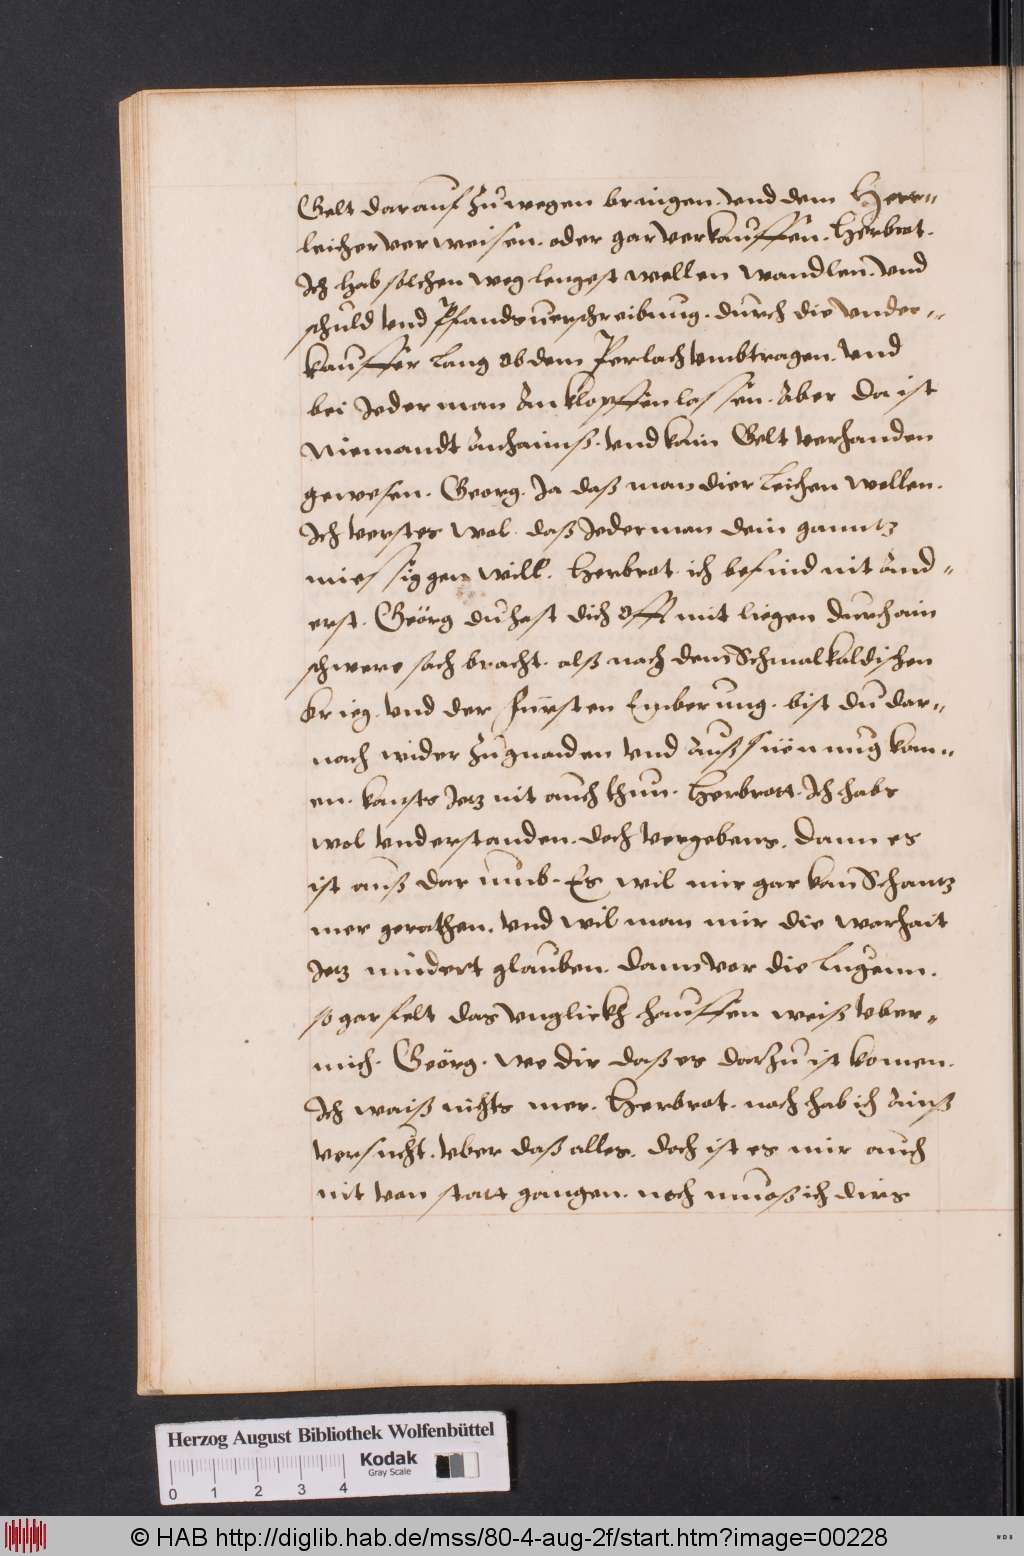 Gelt darauf zu wegen bringen. vnd dem Herr-
leicher verweisen. oder gar verkauffen. Herbrot.
Ich hab solchen weg lengest wellen wandlen. vnd
schuld vnd Pfandsuerschreibung. durch die vnder-
kauffer lang ob dem Perlach vmbtragen. vnd
bei Jederman Anklopffen lassen. Aber da ist
Niemandt Anhaimß. vnd kain Gelt verhanden
gewesen. Georg. Ja daß man dier leichen wellen.
Ich verstes wol. daß Jederman dein ganntz
miessig gen will. Herbrot. ich befind nit And-
erst. Geörg du hast dich offt mit liegen durch ain
schwere sach bracht. alß nach dem Schmalkaldischen
krieg. vnd der fürsten Emberung. bist du dar-
nach wider zu gnaiden vnd Außsüenung kom-
en. kansts Jetz nit auch thun. Herbrott. Ich habs
wol vnderstanden. doch vergebens. dann es
ist auß dar umb. Es wil mir gar kain Schantz
mer gerathen. vnd wil man mir die warhait
Jetz mindert glauben. dann vor die lugenn.
so gar felt das vnglickh hauffen weiß vber-
mich. Geörg. we dir daß es darzu ist komen.
Ich waiß nichts mer. Herbrot. noch hab ich Ainß
versucht. vber daß alles. doch ist es mir auch
nit von statt gangen. noch muoß ich dirs
Herzog August Bibliothek Wolfenbüttel
Kodak
Gray Scale
0 1 2 3 4
© HAB http://diglib.hab.de/mss/80-4-aug-2f/start.htm?image=00228